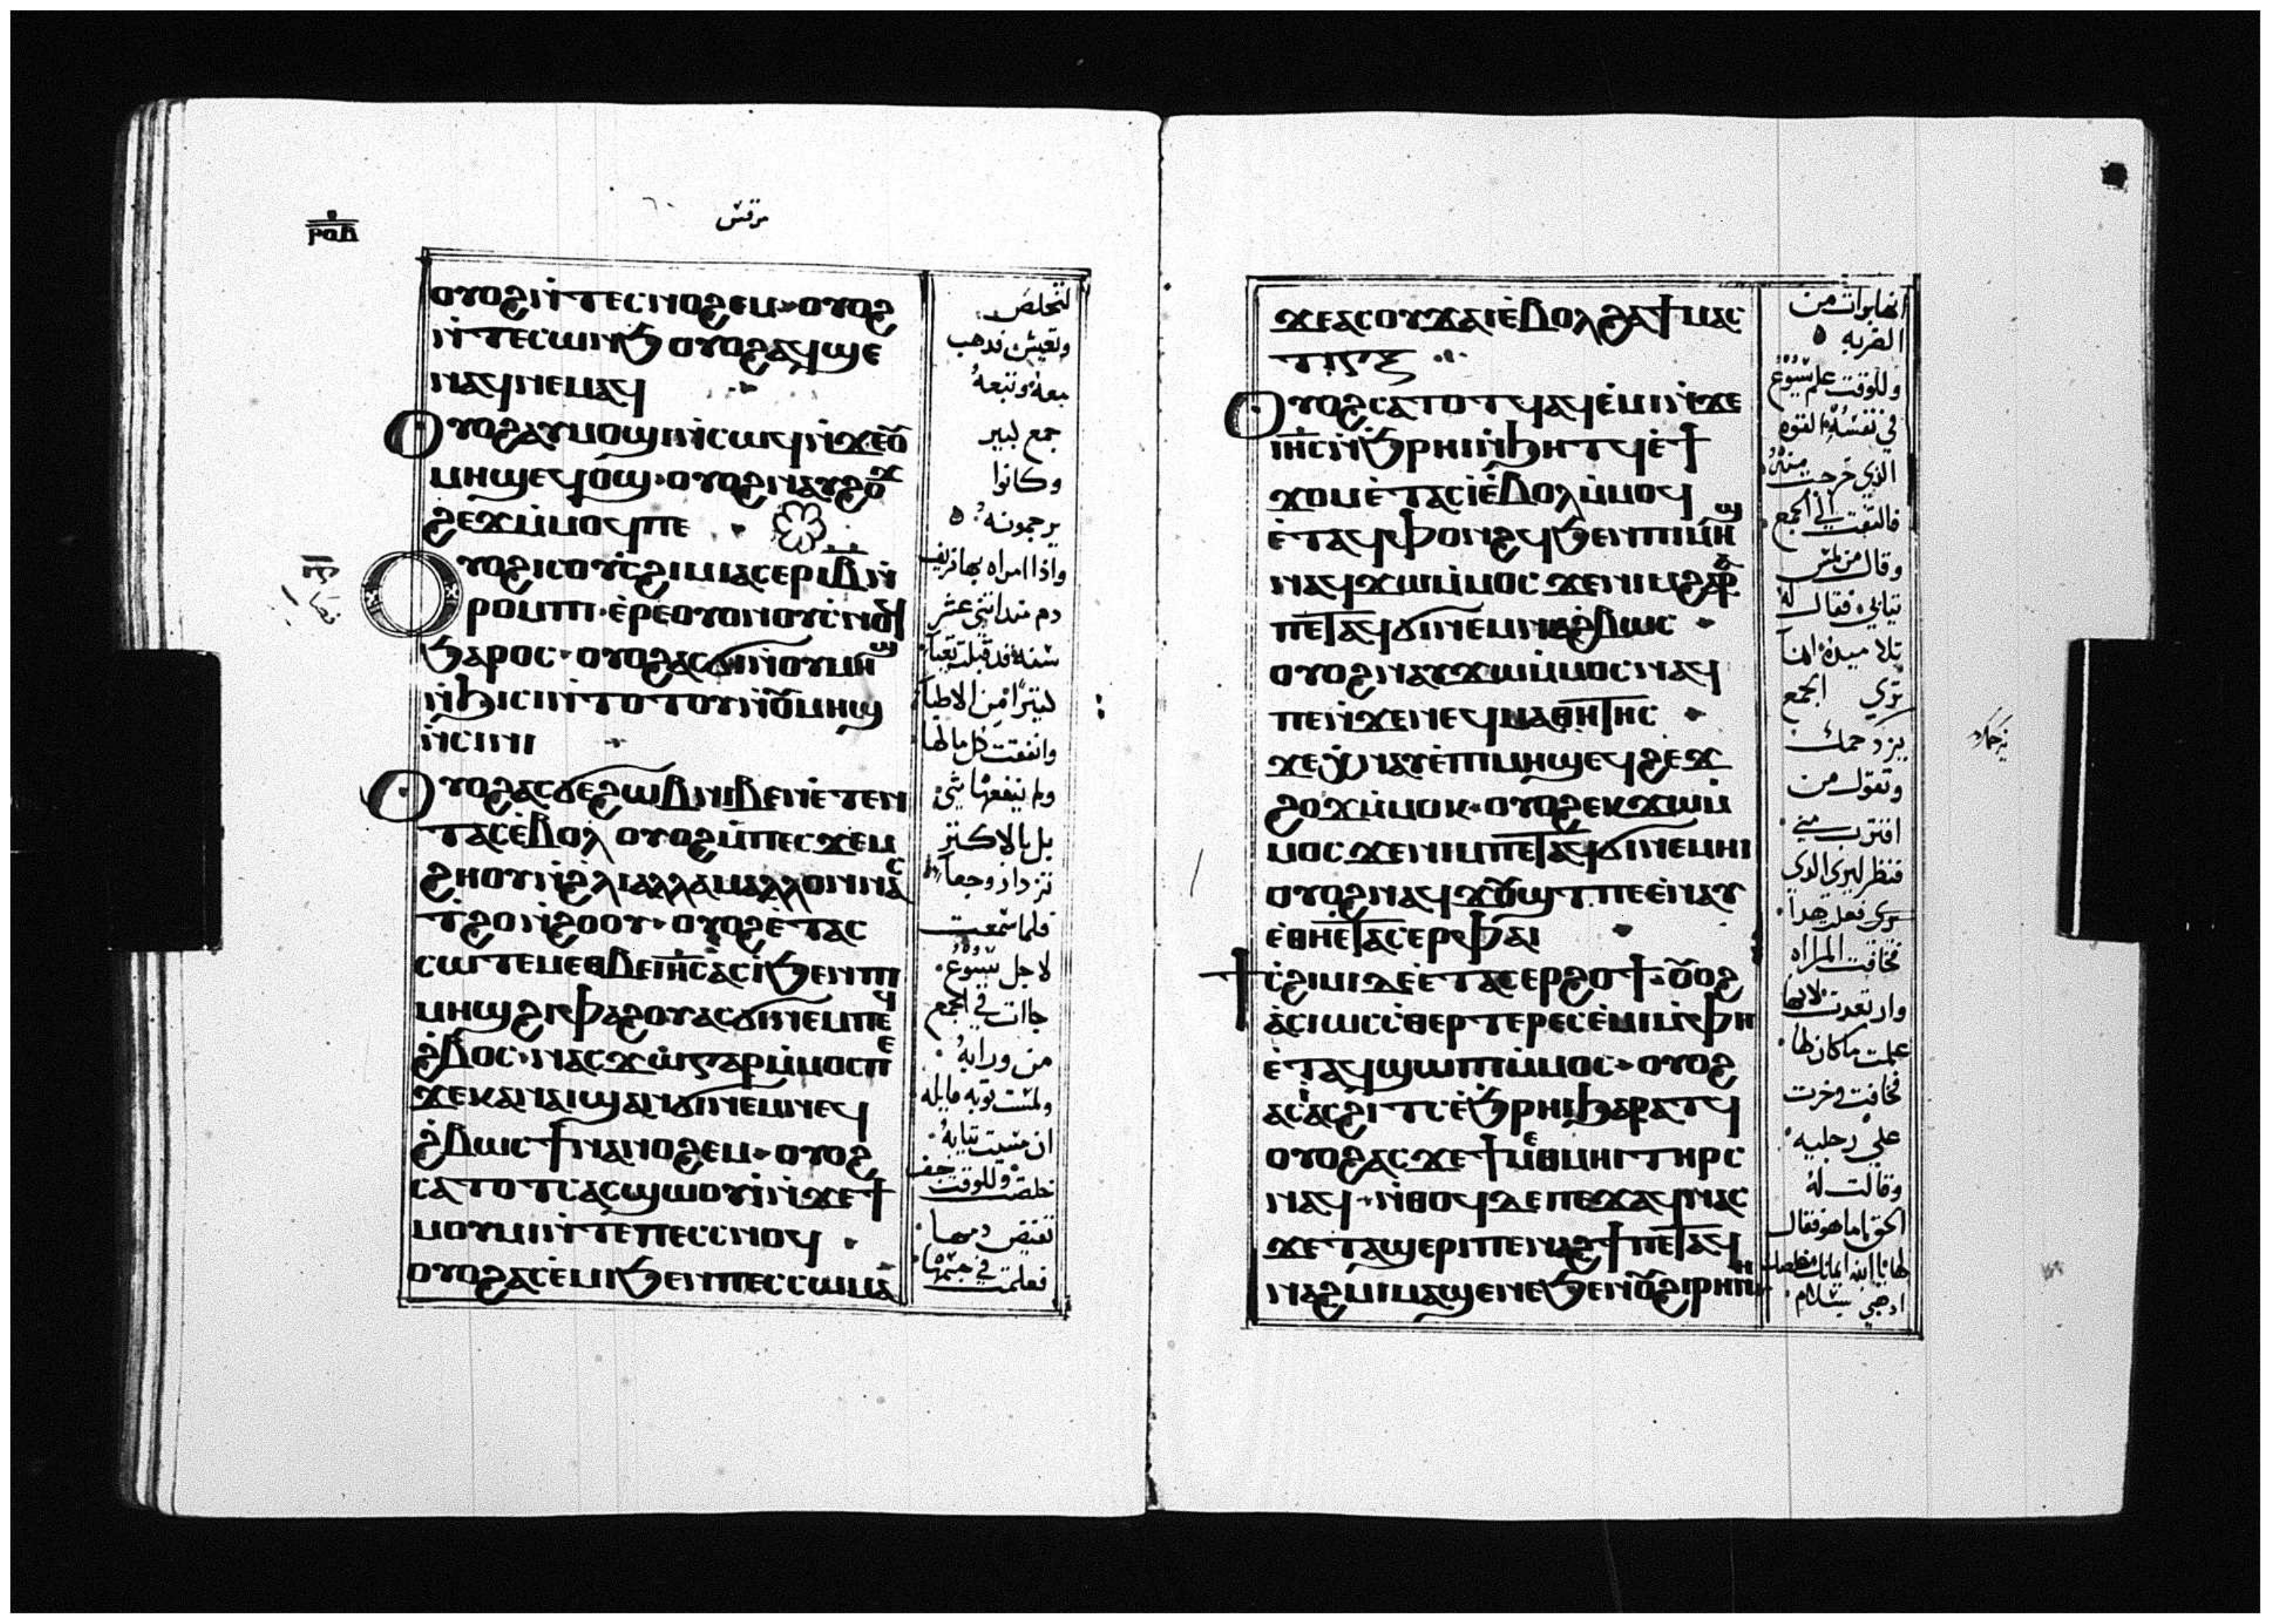 ⲣⲟⲃ
مرقس
ⲟⲩⲟϩ ⲛ̀ⲧⲉⲥⲛⲟϩⲉⲙ ⲟⲩⲟϩ
ⲛ̀ⲧⲉⲥⲱⲛϧ ⲟⲩⲟϩ ⲁϥϣⲉ
ⲛⲁϥ ⲛⲉⲙⲁϥ
ⲟⲩⲟϩ ⲁⲩⲙⲟϣⲓ ⲛ̀ⲥⲱϥ ⲛ̀ϫⲉ ⲟⲩ
ⲙⲏϣ ⲉϥⲟϣ ⲟⲩⲟϩ ⲛⲁⲩϩⲟϫ
ϩⲉϫ ⲙ̀ⲙⲟϥ ⲡⲉ
ⲟⲩⲟϩ ⲓⲥ ⲟⲩⲥ̀ϩⲓⲙⲓ ⲁⲥⲉⲣ ⲓⲃ ⲛ̀
ⲣⲟⲙⲡⲓ ⲉ̀ⲣⲉ ⲟⲩⲟⲛ ⲟⲩⲥⲛⲟϥ
ϧⲁⲣⲟⲥ ⲟⲩⲟϩ ⲁⲥϭⲓ ⲛ̀ⲟⲩⲙⲏϣ
ⲛ̀ϧⲓⲥⲓ ⲛ̀ⲧⲟⲧⲟⲩ ⲛ̀ⲟⲩⲙⲏϣ
ⲛ̀ⲥⲓⲛⲓ
ⲟⲩⲟϩ ⲁⲥϭⲉ ϩⲱⲃ ⲛⲓⲃⲉⲛ ⲉ̀ⲧⲉⲛ
ⲧⲁⲥ ⲉ̀ⲃⲟⲗ ⲟⲩⲟϩ ⲙ̀ⲡⲉⲥϫⲉⲙ
ϩⲏⲟⲩ ⲛ̀ϩⲗⲓ ⲁⲗⲗⲁ ⲙⲁⲗⲗⲟⲛ ⲛⲁⲥ
ϯϩⲟ ⲛ̀ϩⲟⲩⲟ ⲟⲩⲟϩ ⲉ̀ⲧⲁⲥ
ⲥⲱⲧⲉⲙ ⲉⲑⲃⲉ ⲓⲏⲥ ⲁⲥⲓ̀ ϧⲉⲛ ⲡⲓ
ⲙⲏϣ ϩⲓ ⲫⲁϩⲟⲩ ⲁⲥϭⲓ ⲛⲉⲙ ⲡⲉϥ
ϩ̀ⲃⲟⲥ ⲛⲁⲥϫⲱ ⲅⲁⲣ ⲙ̀ⲙⲟⲥ ⲡⲉ
ϫⲉ ⲕⲁⲛ ⲁⲓϣⲁⲛϭⲓ ⲛⲉⲙ ⲛⲉϥ
ϩ̀ⲃⲱⲥ ϯⲛⲁⲛⲟϩⲉⲙ ⲟⲩⲟϩ
ⲥⲁⲧⲟⲧⲥ ⲁⲥϣⲱⲟⲩⲓ̀ ⲛ̀ϫⲉ ϯ
ⲙⲟⲩⲙⲓ ⲛ̀ⲧⲉ ⲡⲉⲥⲥⲛⲟϥ
ⲟⲩⲟϩ ⲁⲥⲉ̀ⲙⲓ ϧⲉⲛ ⲡⲉⲥⲥⲱⲙⲁ
لتخلص
وتعيش فذهب
معه وتبعه
جمع كبير
وكانوا
يزحمونه
واذا امراه بها نزيف
دم منذ اثنى عشر
سنه قد قبلت تعبا
كثيرا من الاطبا
وانفقت كل مالها
ولم ينفعها شي
بل بالاكثر
تزداد وجعا
فلما سمعت
لاجل يسوع
جاات في الجمع
من ورايه
ولمست ثوبه قايله
ان مسيت ثيابه
خلصت وللوقت جف
تفيض دمها
فعلمت في جسمها
ϫⲉ ⲁⲥⲟⲩϫⲁⲓ ⲉ̀ⲃⲟⲗϩⲁ ϯⲙⲁⲥ
ⲧⲓⲅⲝ
ⲟⲩⲟϩ ⲥⲁⲧⲟⲧϥ ⲁϥⲉ̀ⲙⲓ ⲛ̀ϫⲉ
ⲓⲏⲥ ⲛ̀ϧⲣⲏⲓ ⲛ̀ϧⲏⲧϥ ⲉ̀ϯ
ϫⲟⲙ ⲉ̀ⲧⲁⲥⲓ̀ ⲉ̀ⲃⲟⲗ ⲙ̀ⲙⲟϥ
ⲉ̀ⲧⲁϥⲫⲟⲛϩϥ ϧⲉⲛ ⲡⲓⲙⲏϣ
ⲛⲁϥϫⲱ ⲙ̀ⲙⲟⲥ ϫⲉ ⲛⲓⲙ
ⲡⲉⲧⲁϥϭⲓ ⲛⲉⲙ ⲛⲁϩ̀ⲃⲱⲥ
ⲟⲩⲟϩ ⲛⲁⲩϫⲱ ⲙ̀ⲙⲟⲥ ⲛⲁϥ
ⲡⲉ ⲛ̀ϫⲉ ⲛⲉϥⲙⲁⲑⲏⲧⲏⲥ
ϫⲉ ⲭⲛⲁⲩ ⲉ̀ⲡⲓⲙⲏϣ ⲉϥϩⲉϫ
ϩⲟϫ ⲙ̀ⲙⲟⲕ ⲟⲩⲟϩ ⲉⲕϫⲱ ⲙ̀
ⲙⲟⲥ ϫⲉ ⲛⲓⲙ ⲡⲉⲧⲁϥϭⲓ ⲛⲉⲙⲏⲓ
ⲟⲩⲟϩ ⲛⲁϥϫⲟⲩϣⲧ ⲡⲉ ⲉ̀ⲛⲁⲩ
ⲉ̀ⲑⲏⲉ̀ⲧⲁⲥⲉⲣ ⲫⲁⲓ
ϯⲥ̀ϩⲓⲙⲓ ⲇⲉ ⲉ̀ⲧⲁⲥⲉⲣϩⲟϯ ⲟⲩⲟϩ
ⲥ̀ⲑⲉⲣⲧⲉⲣ ⲉⲥⲉ̀ⲙⲓ ⲙ̀ⲫⲏ
ⲉ̀ⲧⲁϥϣⲱⲡⲓ ⲙ̀ⲙⲟⲥ ⲟⲩⲟϩ
ⲁⲥⲓ̀ ⲁⲥϩⲓⲧⲥ ⲉ̀ϧⲣⲏⲓ ϧⲁⲣⲁⲧϥ
ⲟⲩⲟϩ ⲁⲥϫⲉ ϯⲙⲉⲑⲙⲏⲓ ⲧⲏⲣⲥ
ⲛⲁϥ ⲛ̀ⲑⲟϥ ⲇⲉ ⲡⲉϫⲁϥ ⲛⲁⲥ
ϫⲉ ⲧⲁϣⲉⲣⲓ ⲡⲉⲛⲁϩϯ ⲡⲉⲧⲁϥ
ⲛⲁϩⲙⲓ ⲙⲁϣⲉ ⲛⲉ ϧⲉⲛ ⲟⲩϩⲓⲣⲏⲛⲏ
انها برات من
الضربه
وللوقت علم يسوع
في نفسه القوه
الذي خرجت منه
فالتفت الي الجمع
وقال من لمس
ثيابي فقال له
تلاميذه اما
تري الجمع
يزحمك
وتقول من
اقترب مني
فنظر ليري الذي
فعل هذا
فخافت المراه
وارتعدت لانها
علمت ما كان لها
فخافت وخرت
علي رجليه
وقالت له
الحق فقال
لها يا ابنه ايمانك خلصك
اذهبي بسلام